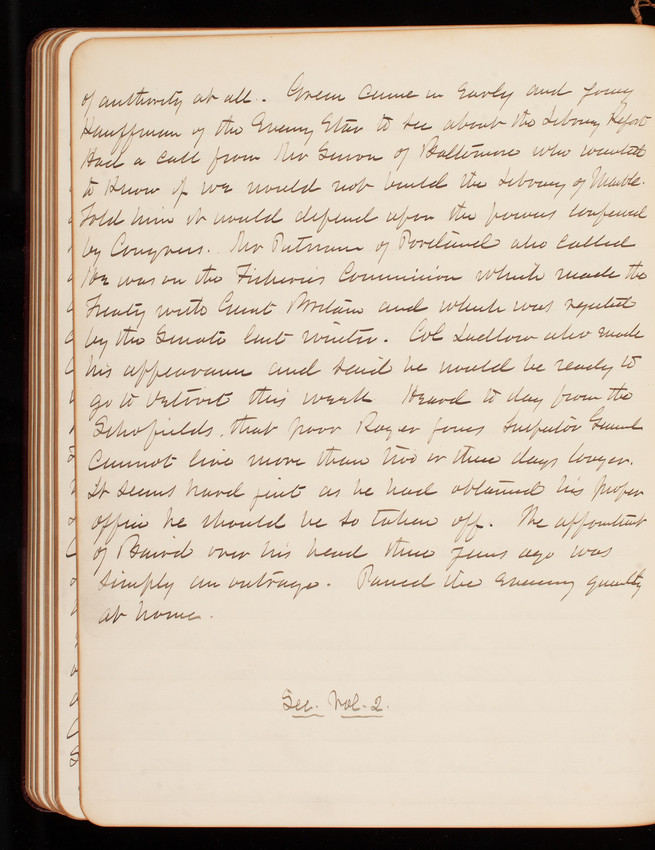 of authority at all. Green came in early and young
Kauffman of the Evening Star to see about the Library Report
Had a call from Mr of Baltimore who wanted
to know if we would not build the Library of Marble.
Told him it would depend upon the powers conferred
by Congress. Mr Putnam of Portland also called
He was on the Fisheries Commission which made the
Treaty with Great Britain and which was rejected
by the Senate last winter. Col Ludlow also made
his appearance and said he would be ready to
go to Detroit this week Heard to day from the
Schofields, that poor Roger Jones Inspector Genl
cannot live more than two or three days longer.
It seems hard just as he had obtained his proper
office he should be so taken off. The appointment
of Baird over his head three years ago was
simply an outrage. Passed the evening quietly
at home.
See. Vol. 2.